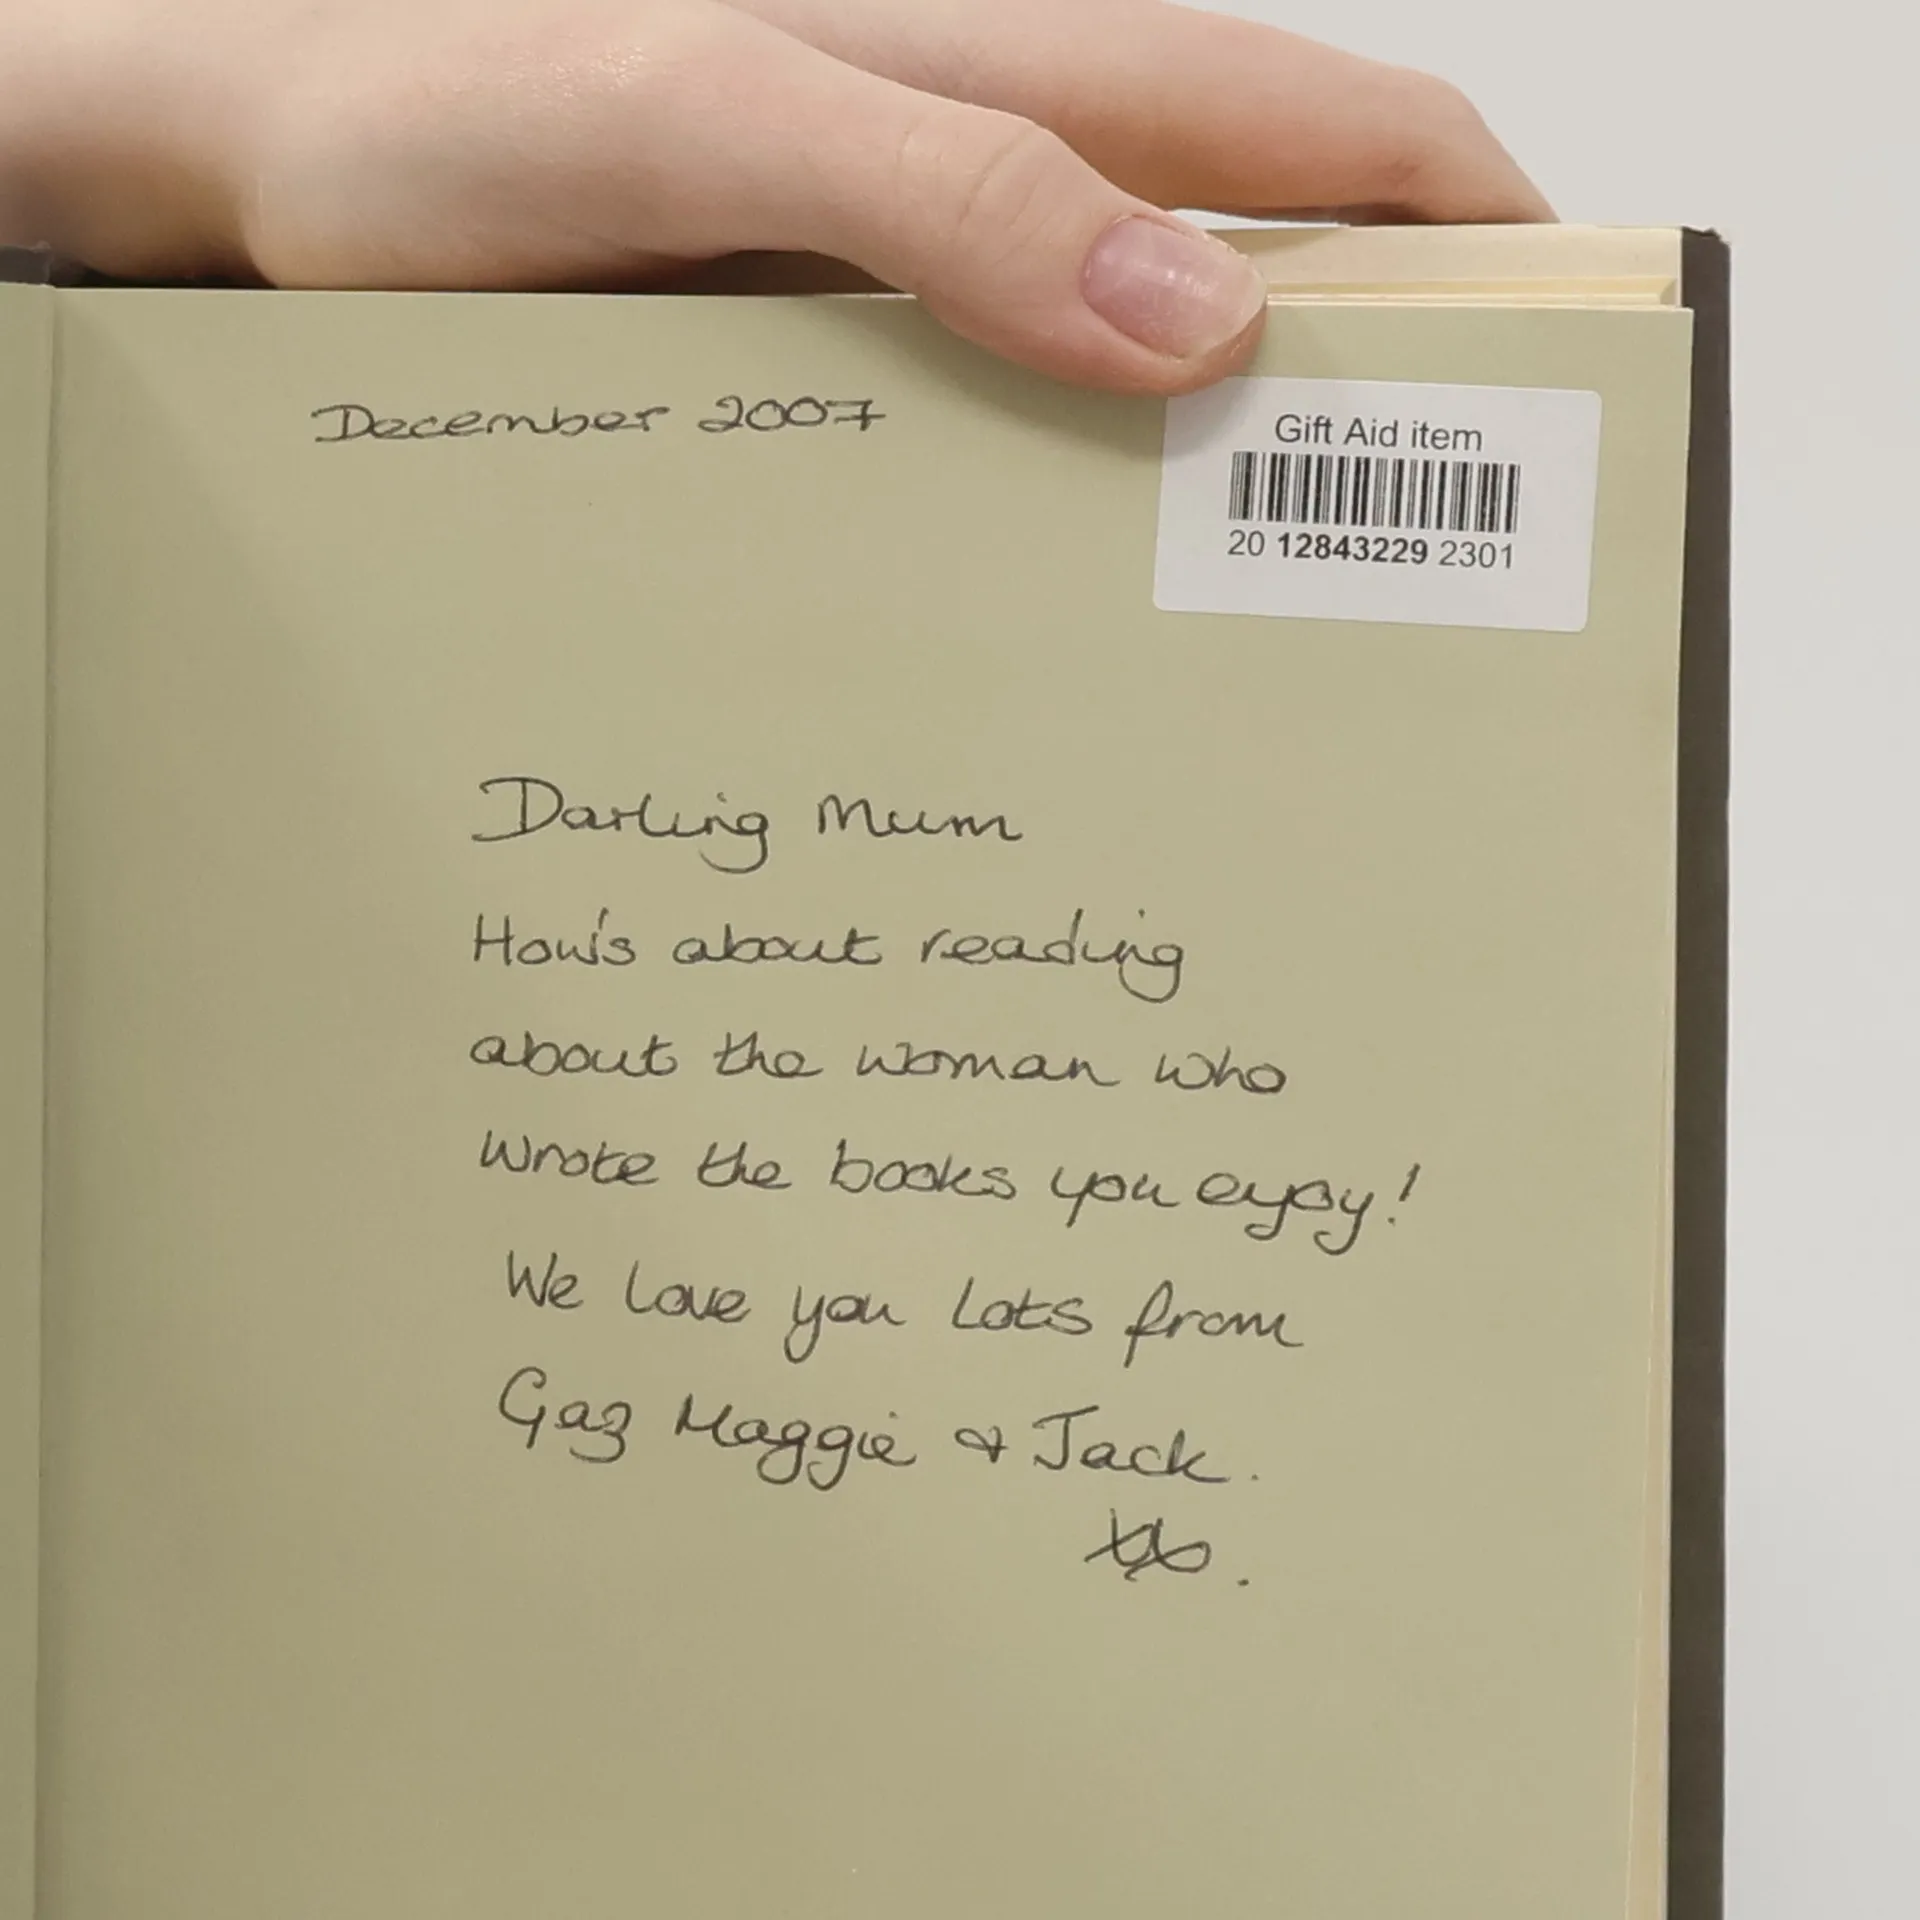 December 2007
Gift Aid item
20 12843229 2301
Darling Mum
How's about reading
about the woman who
wrote the books you enjoy!
We love you lots from
Gaz Maggie & Jack.
xx.